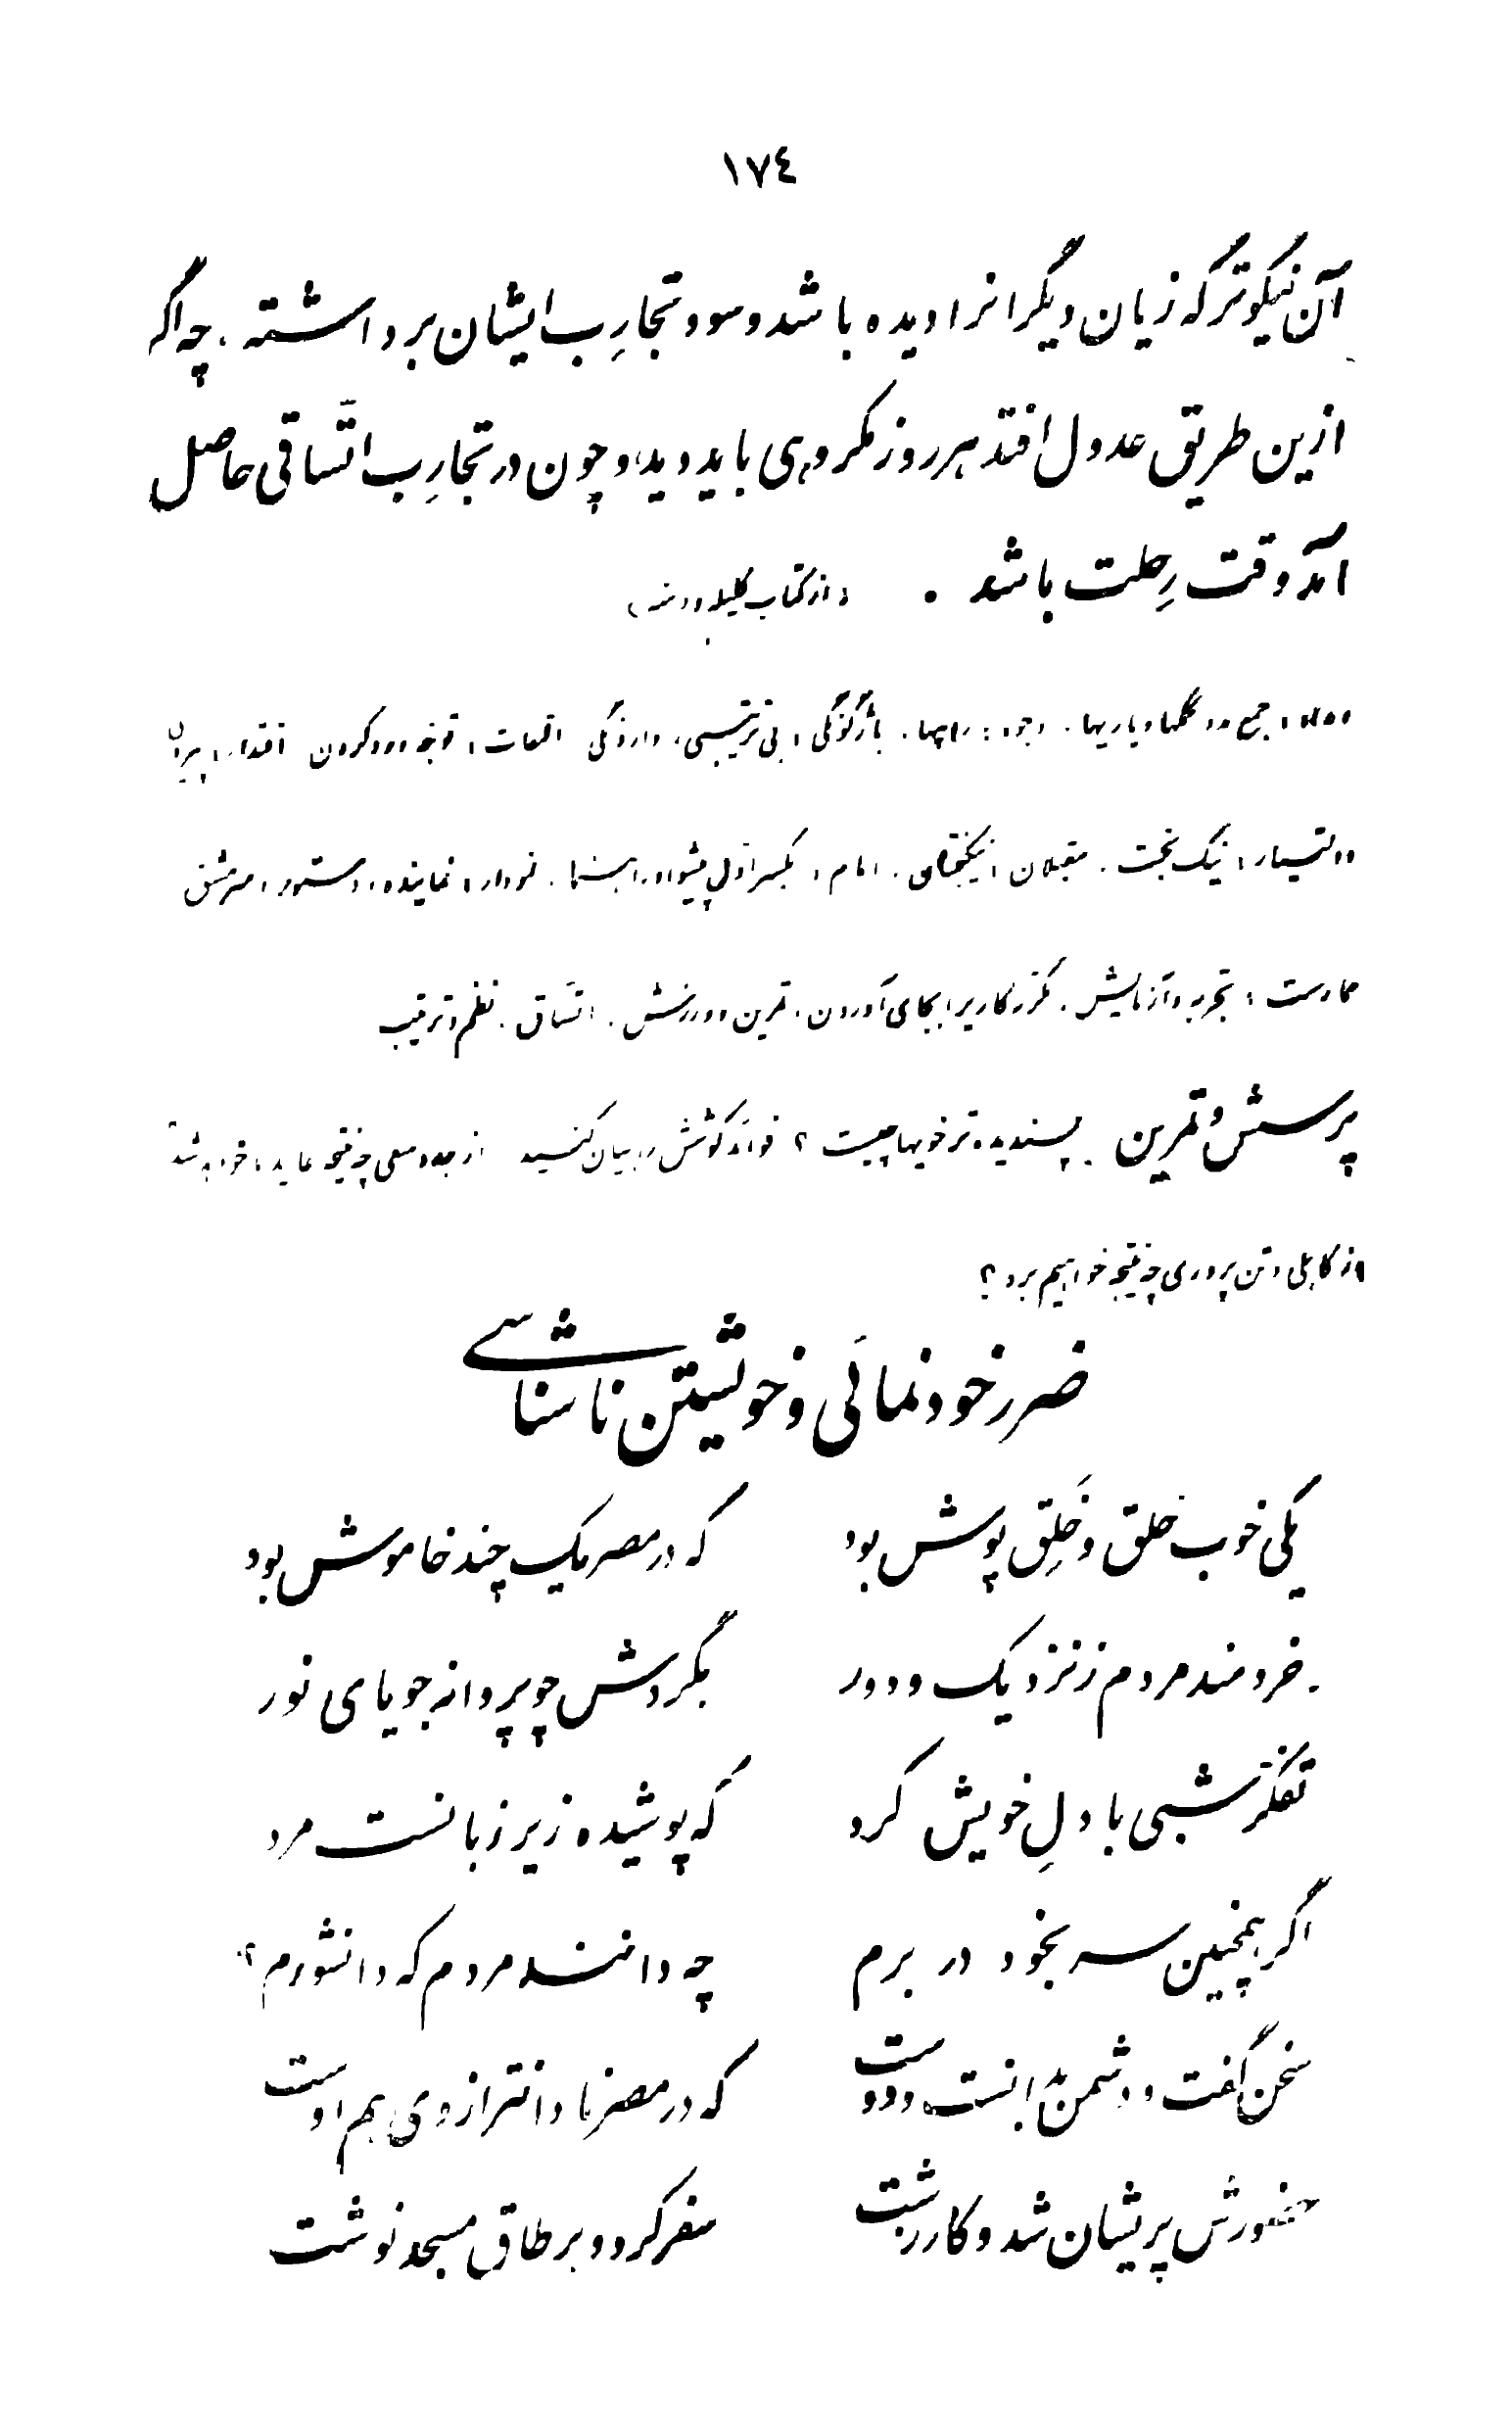 ١٧٤
آن نیکوتر که زیان دیگرانرا دیده باشد و سود تجارِب ایشان برداشته ، چه اگر
ازین طریق عدول افتد هر روز مکروهی باید دید، و چون در تجارِب اتّساقی حاصل
آمد وقت رِحلت باشد . (از کتاب کلیله و دمنه)
جمع مدد کمکها و یاریها . وجوه : راهها . باژگونگی ، بی‌ترتیبی ، وارونگی التفات ، توجه کردن اقتدا ، پیروی
دولتیار ، نیک بخت . مقبلان ، نیکبختان . امام ، بکسر اول پیشوا و راهنما . نمودار ، نماینده ، دستور ، سرمشق
ممارست ، تجربه و آزمایش . مکرّر کاریرا بجای آوردن ، تمرین و ورزش . اتساق . نظم و ترتیب
پرسش و تمرین . پسندیده‌تر خویها چیست ؟ فوائد کوشش را بیان کنید از جد و سعی چه نتیجه عاید خواهد شد
از کاهلی و تن پروری چه نتیجه خواهیم برد ؟
ضرر خودنمائی و خویشتن ناشناسی
یکی خوب خلق و خَلِق پوش بود که در مصر یک چند خاموش بود
خردمند مردم ز نزدیک و دور بگردش چو پروانه جویای نور
تفکّر شبی با دلِ خویش کرد که پوشیده زیر زبانست مرد
اگر همچنین سر بخود در برم چه دانند مردم که دانشورم ؟
سخن گفت و دشمن بدانست و دوست که در مصر نادانتر از وی هم اوست
حضورش پریشان شد و کار زشت سفر کرد و بر طاق مسجد نوشت